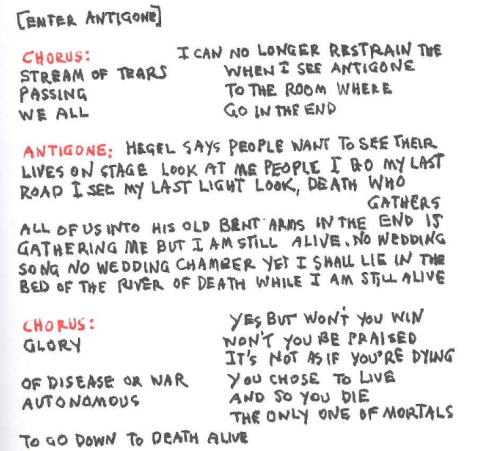 [ENTER ANTIGONE]
CHORUS: I CAN NO LONGER RESTRAIN THE
STREAM OF TEARS WHEN I SEE ANTIGONE
PASSING TO THE ROOM WHERE
WE ALL GO IN THE END
ANTIGONE: HEGEL SAYS PEOPLE WANT TO SEE THEIR
LIVES ON STAGE LOOK AT ME PEOPLE I GO MY LAST
ROAD I SEE MY LAST LIGHT LOOK, DEATH WHO
GATHERS
ALL OF US INTO HIS OLD BENT ARMS IN THE END IS
GATHERING ME BUT I AM STILL ALIVE. NO WEDDING
SONG NO WEDDING CHAMBER YET I SHALL LIE IN THE
BED OF THE RIVER OF DEATH WHILE I AM STILL ALIVE
CHORUS: YES BUT WON'T YOU WIN
GLORY WON'T YOU BE PRAISED
IT'S NOT AS IF YOU'RE DYING
OF DISEASE OR WAR YOU CHOSE TO LIVE
AUTONOMOUS AND SO YOU DIE
THE ONLY ONE OF MORTALS
TO GO DOWN TO DEATH ALIVE